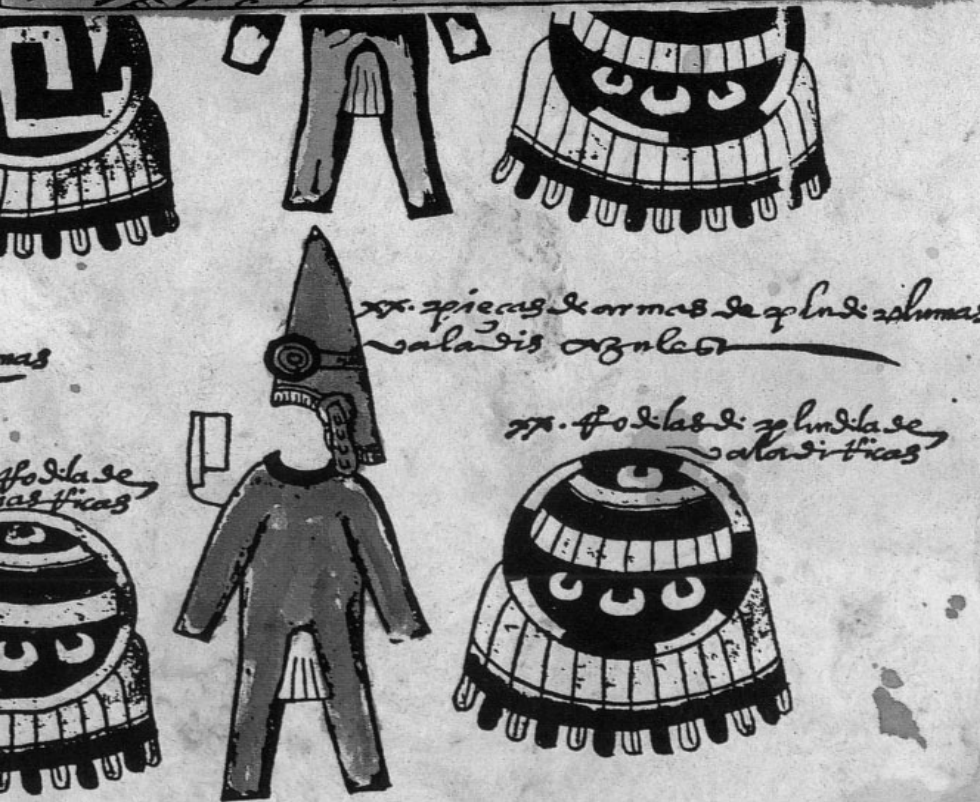 xx. pieças de armas de plu de plumas
valadis azules
mas
xx. Rodelas de plu de la de
valadi Ricas
Rodela de
ias Ricas